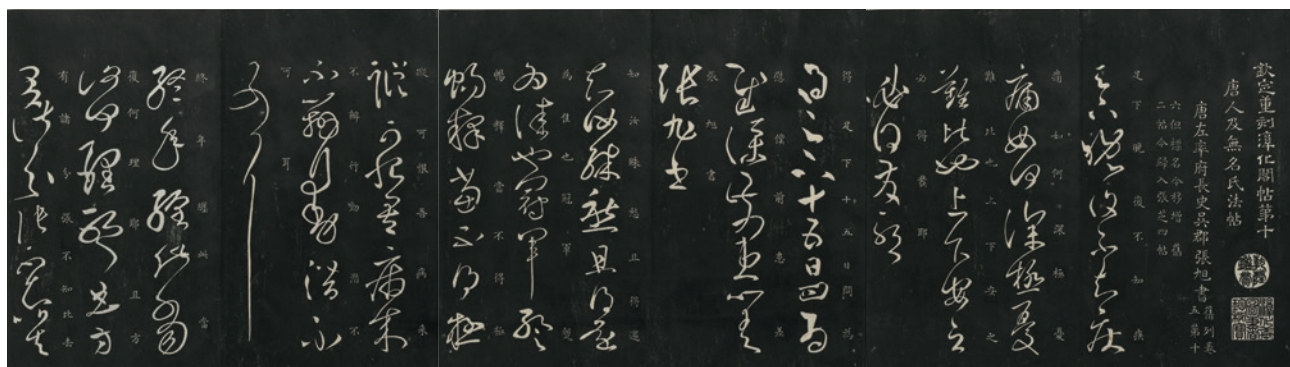 欽定重刻淳化閣帖第十
唐人及無名氏法帖
唐左率府長史吳郡張旭書
舊列卷
五第十
六但標名今移增舊
二帖今歸入張芝四帖
足下晚復不知疾
痛如何深極憂
難比也上下安之
必得叢耶
得足下十五日問為
慰僕前患差
張旭書
知汝殊愁且得還
為佳也冠軍暫
暢釋當不得極
蹤可恨吾病來
不辦行動潛不
可耳
終年纏此當
復何理耶且方
有諸分張不知比去